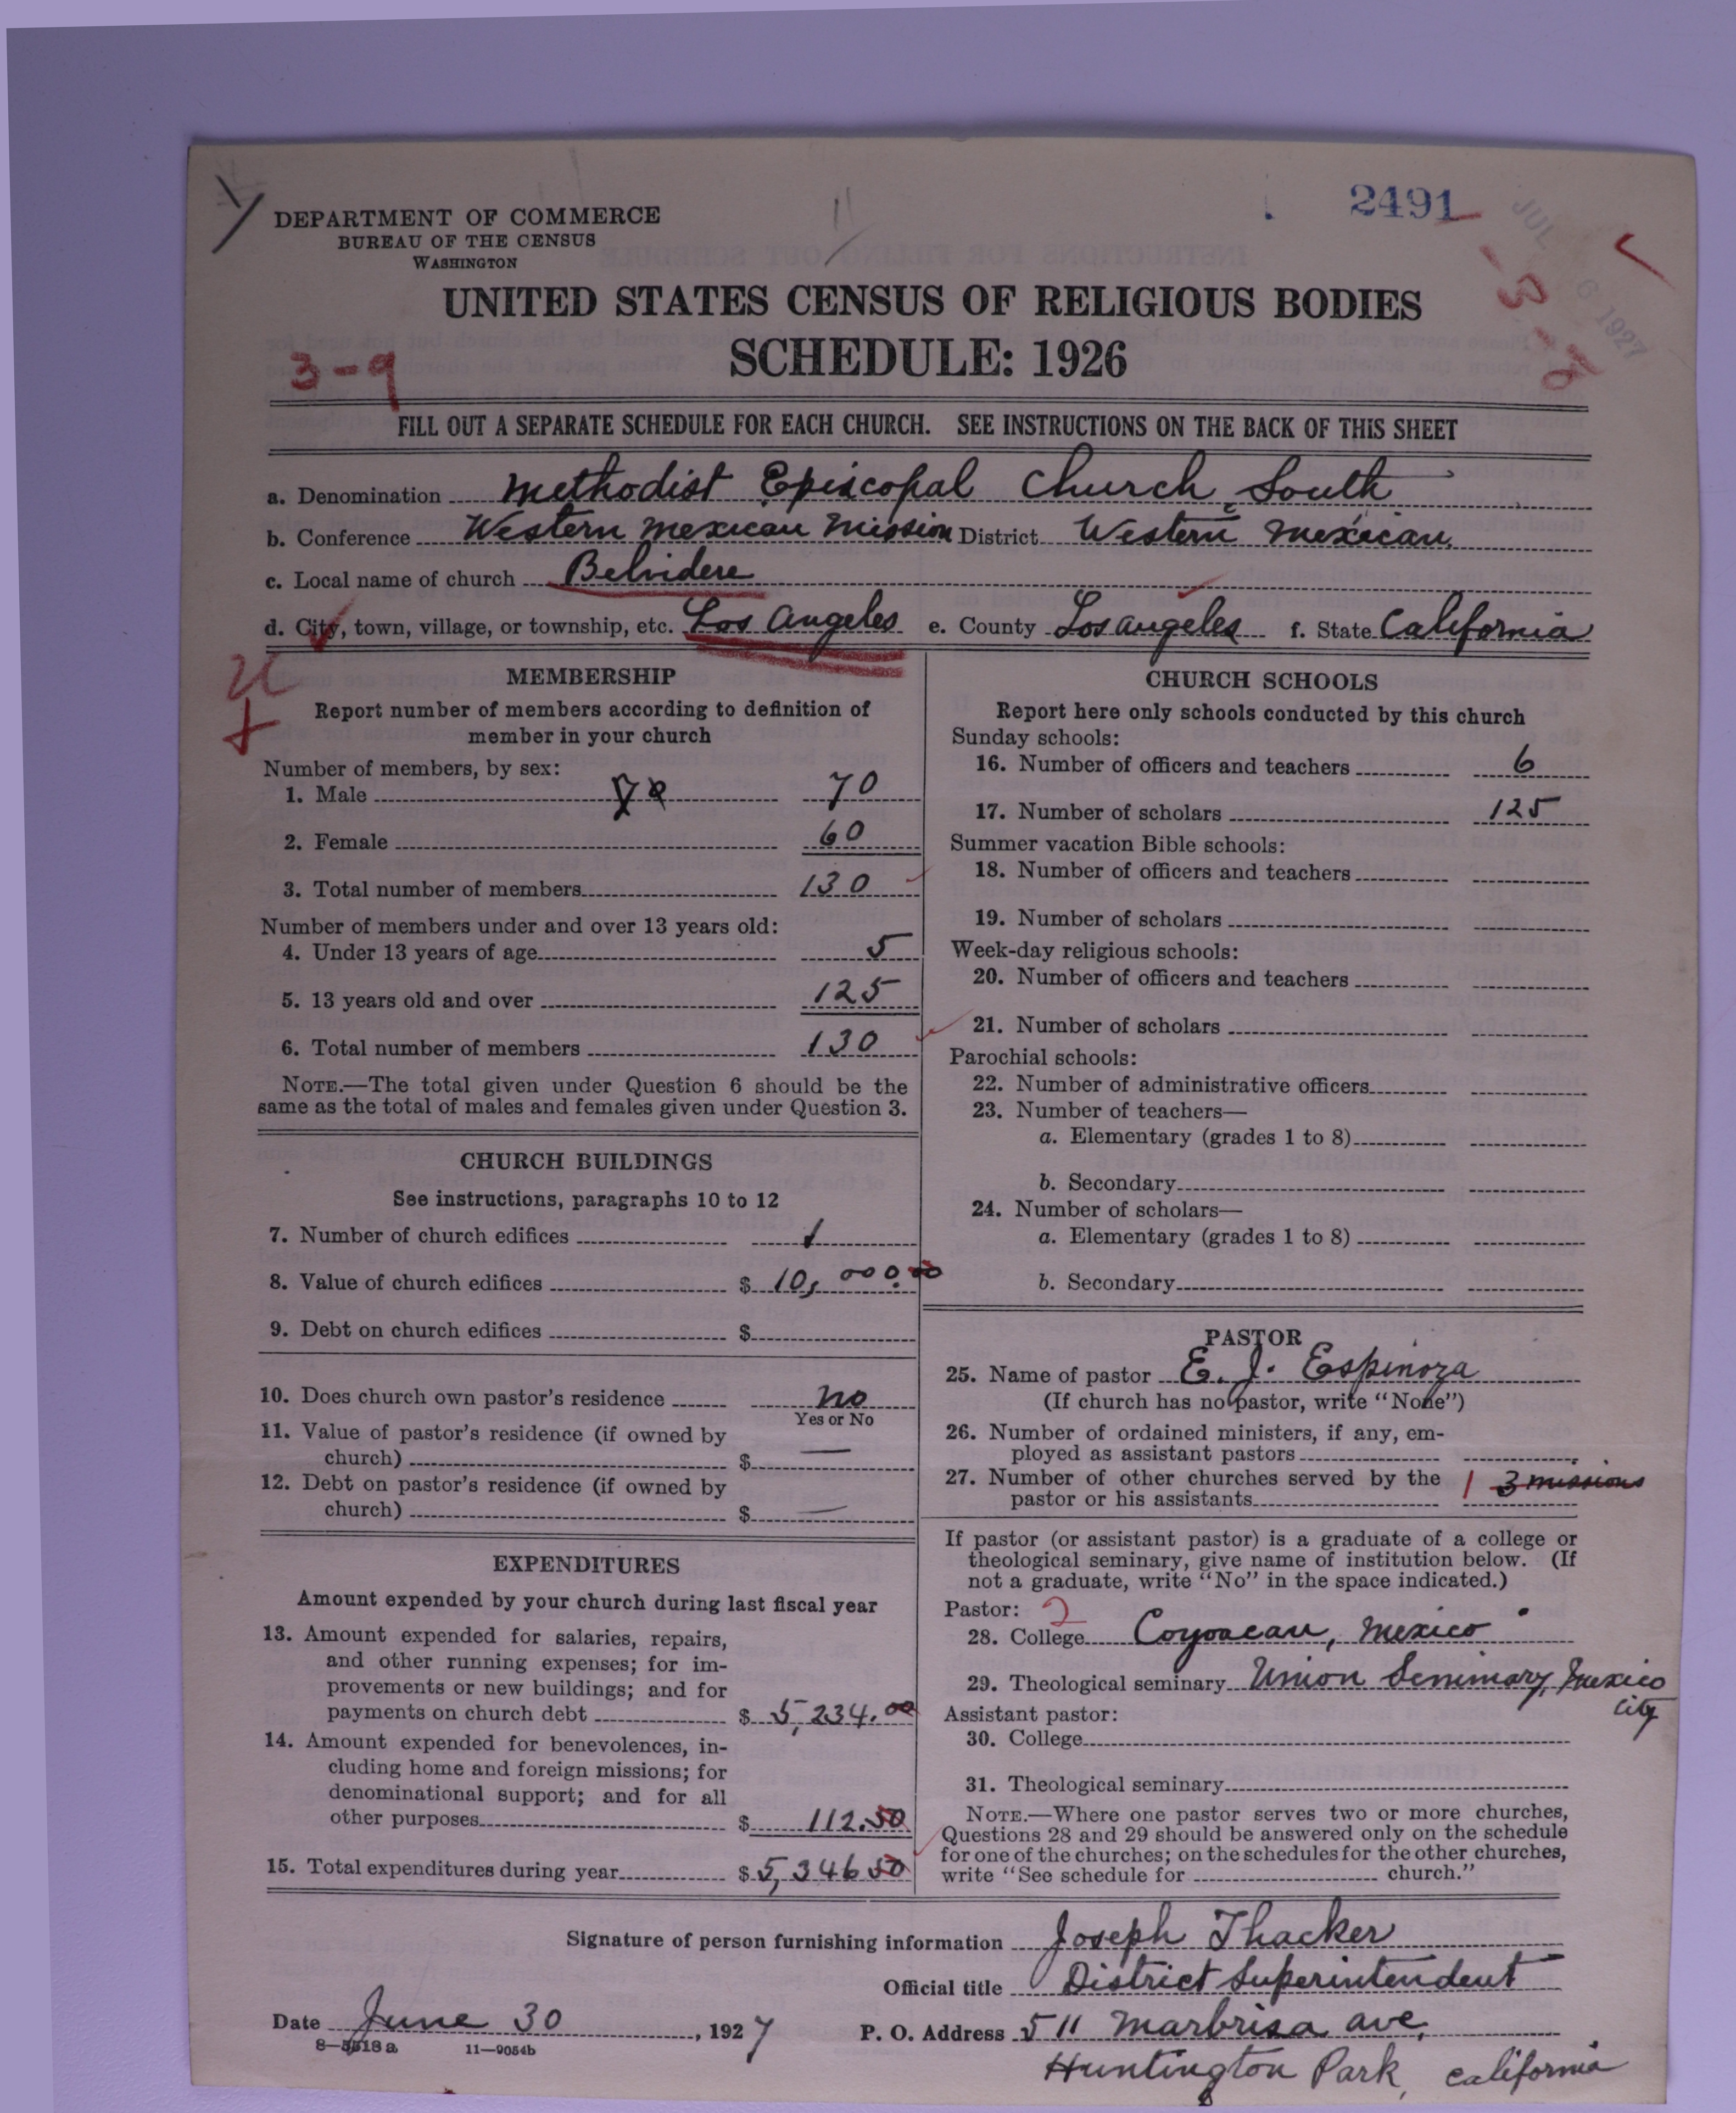 2491
JUL 1927
DEPARTMENT OF COMMERCE
BUREAU OF THE CENSUS
WASHINGTON
UNITED STATES CENSUS OF RELIGIOUS BODIES
SCHEDULE: 1926
3-9
FILL OUT A SEPARATE SCHEDULE FOR EACH CHURCH. SEE INSTRUCTIONS ON THE BACK OF THIS SHEET
a. Denomination Methodist Episcopal Church, South
b. Conference Western Mexican Mission District Western Mexican
c. Local name of church Belvidere
d. City, town, village, or township, etc. Los Angeles e. County Los Angeles f. State California
MEMBERSHIP
Report number of members according to definition of
member in your church
Number of members, by sex:
1. Male 70
2. Female 60
3. Total number of members 130
Number of members under and over 13 years old:
4. Under 13 years of age 5
5. 13 years old and over 125
6. Total number of members 130
NOTE.—The total given under Question 6 should be the
same as the total of males and females given under Question 3.
CHURCH BUILDINGS
See instructions, paragraphs 10 to 12
7. Number of church edifices 1
8. Value of church edifices $ 10,000.00
9. Debt on church edifices $
10. Does church own pastor's residence no
Yes or No
11. Value of pastor's residence (if owned by
church) $ —
12. Debt on pastor's residence (if owned by
church) $ —
EXPENDITURES
Amount expended by your church during last fiscal year
13. Amount expended for salaries, repairs,
and other running expenses; for im-
provements or new buildings; and for
payments on church debt $ 5,234.00
14. Amount expended for benevolences, in-
cluding home and foreign missions; for
denominational support; and for all
other purposes $ 112.50
15. Total expenditures during year $ 5,346 50
CHURCH SCHOOLS
Report here only schools conducted by this church
Sunday schools:
16. Number of officers and teachers 6
17. Number of scholars 125
Summer vacation Bible schools:
18. Number of officers and teachers
19. Number of scholars
Week-day religious schools:
20. Number of officers and teachers
21. Number of scholars
Parochial schools:
22. Number of administrative officers
23. Number of teachers—
a. Elementary (grades 1 to 8)
b. Secondary
24. Number of scholars—
a. Elementary (grades 1 to 8)
b. Secondary
PASTOR
25. Name of pastor E. J. Espinoza
(If church has no pastor, write "None")
26. Number of ordained ministers, if any, em-
ployed as assistant pastors
27. Number of other churches served by the
pastor or his assistants 1 3 missions
If pastor (or assistant pastor) is a graduate of a college or
theological seminary, give name of institution below. (If
not a graduate, write "No" in the space indicated.)
Pastor: 2
28. College Coyoacan, Mexico
29. Theological seminary Union Seminary, Mexico
City
Assistant pastor:
30. College
31. Theological seminary
NOTE.—Where one pastor serves two or more churches,
Questions 28 and 29 should be answered only on the schedule
for one of the churches; on the schedules for the other churches,
write "See schedule for church."
Signature of person furnishing information Joseph Thacker
Official title District Superintendent
Date June 30, 1927 P. O. Address 511 Marbrisa ave,
Huntington Park, California
8—5518 a 11—9054b